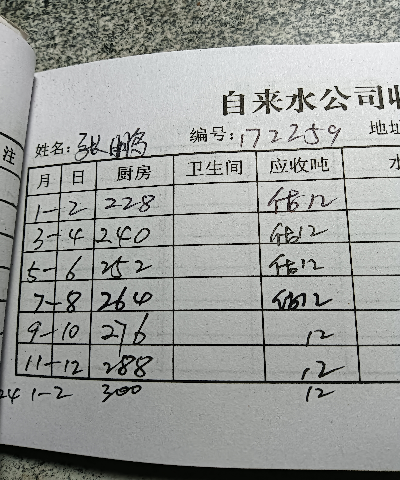 自来水公司收
姓名: 张鹏 编号: 172259 地址
注
月 日 厨房 卫生间 应收吨 水
1-2 228 估12
3-4 240 估12
5-6 252 估12
7-8 264 估12
9-10 276 12
11-12 288 12
24 1-2 300 12